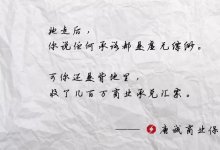 她走后,
你说任何承诺都是虚无缥缈。
可你还是背地里,
收了几百万商业承兑汇票。
——唐诚商业保